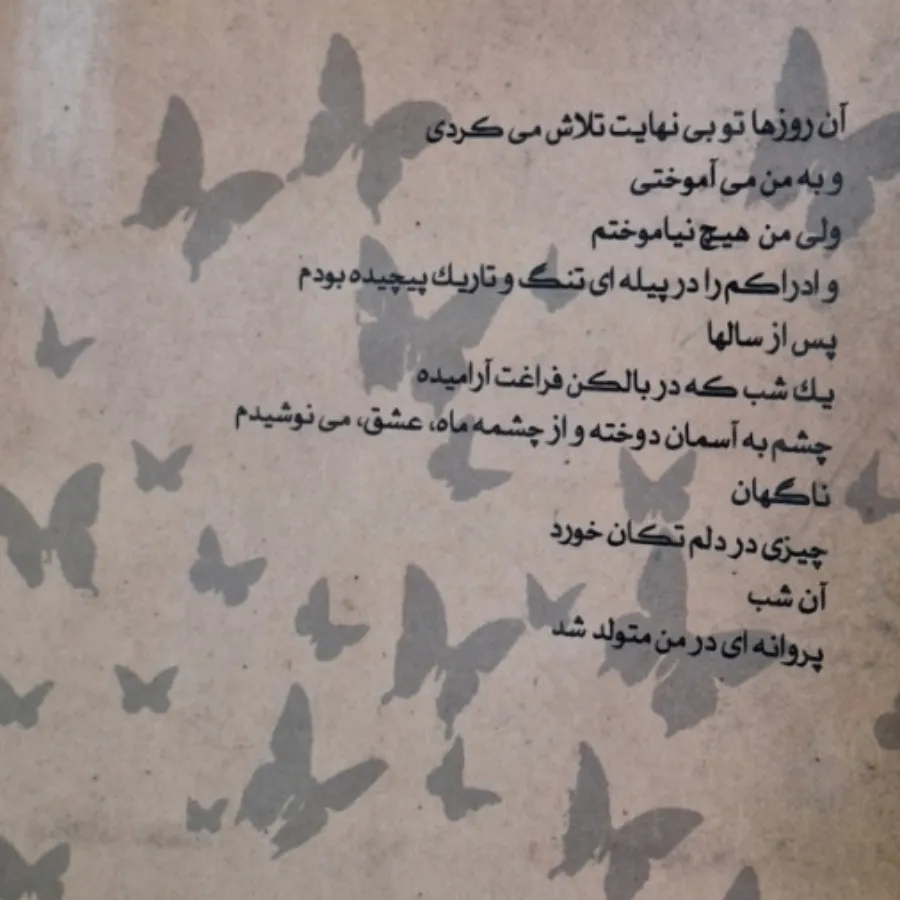 آن روزها تو بی نهایت تلاش می کردی
و به من می آموختی
ولی من هیچ نیاموختم
و ادراکم را در پیله ای تنگ و تاریك پیچیده بودم
پس از سالها
یك شب که در بالکن فراغت آرامیده
چشم به آسمان دوخته و از چشمه ماه، عشق، می نوشیدم
ناگهان
چیزی در دلم تکان خورد
آن شب
پروانه ای در من متولد شد